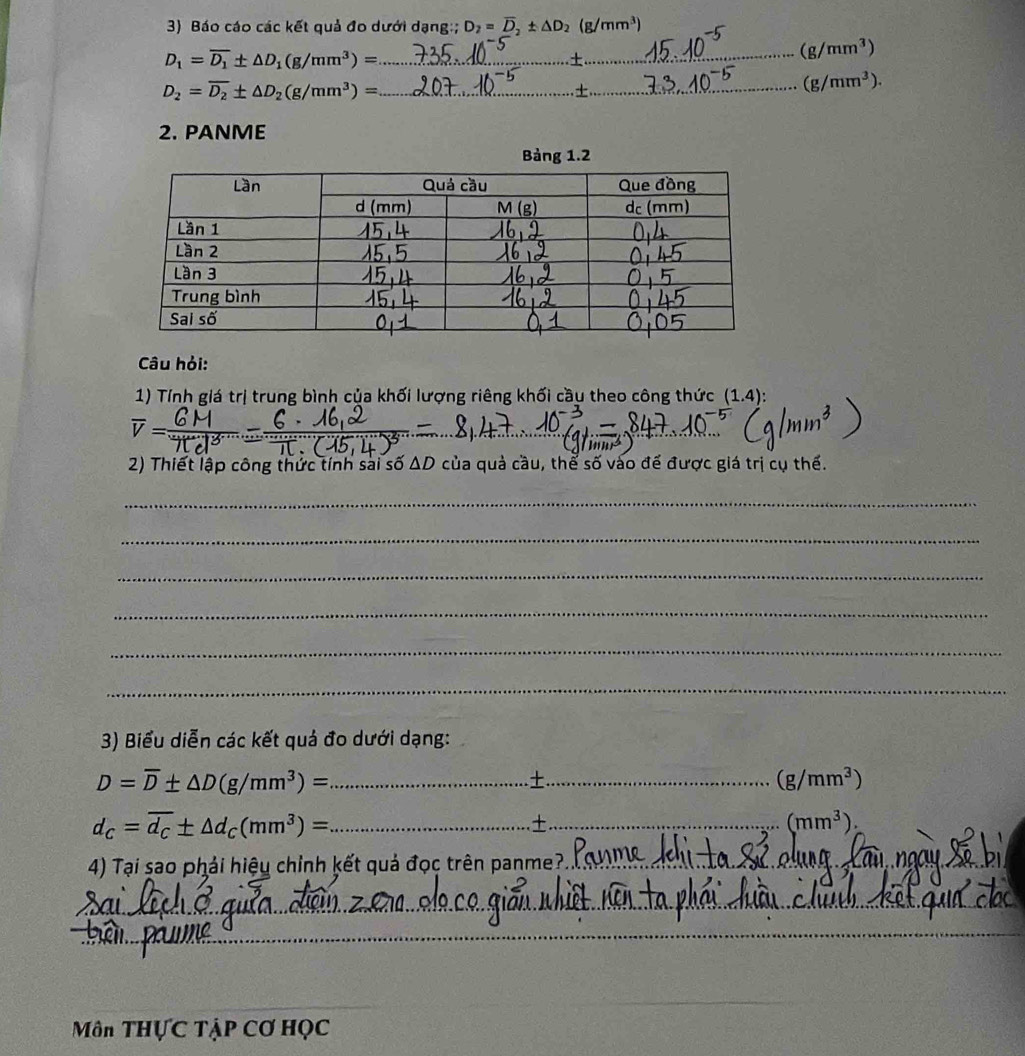 3) Báo cáo các kết quả đo dưới dạng:; D₂ = D̅₂ ± ΔD₂ (g/mm³)
D₁ = D̅₁ ± ΔD₁(g/mm³) = 735.10⁻⁵ ± 15.10⁻⁵ (g/mm³)
D₂ = D̅₂ ± ΔD₂(g/mm³) = 207.10⁻⁵ ± 73.10⁻⁵ (g/mm³).
2. PANME
Bảng 1.2
Lần Quả cầu Que đồng
d (mm) M (g) dc (mm)
Lần 1 15,4 16,2 0,4
Lần 2 15,5 16,2 0,45
Lần 3 15,4 16,2 0,5
Trung bình 15,4 16,2 0,45
Sai số 0,1 0,1 0,05
Câu hỏi:
1) Tính giá trị trung bình của khối lượng riêng khối cầu theo công thức (1.4):
V̅ = 6M/πd³ = 6.16,2/π.(15,4)³ = 8,47.10⁻³ (g/mm³) = 847.10⁻⁵ (g/mm³)
2) Thiết lập công thức tính sai số ΔD của quả cầu, thế số vào để được giá trị cụ thể.
3) Biểu diễn các kết quả đo dưới dạng:
D = D̅ ± ΔD(g/mm³) = ± (g/mm³)
dC = d̅C ± ΔdC(mm³) = ± (mm³).
4) Tại sao phải hiệu chỉnh kết quả đọc trên panme? Panme khi ta sử dụng lâu ngày sẽ bị
sai lệch ở giữa điểm zero do co giãn nhiệt nên ta phải hiệu chỉnh kết quả đọc
trên panme
Môn THỰC TẬP CƠ HỌC